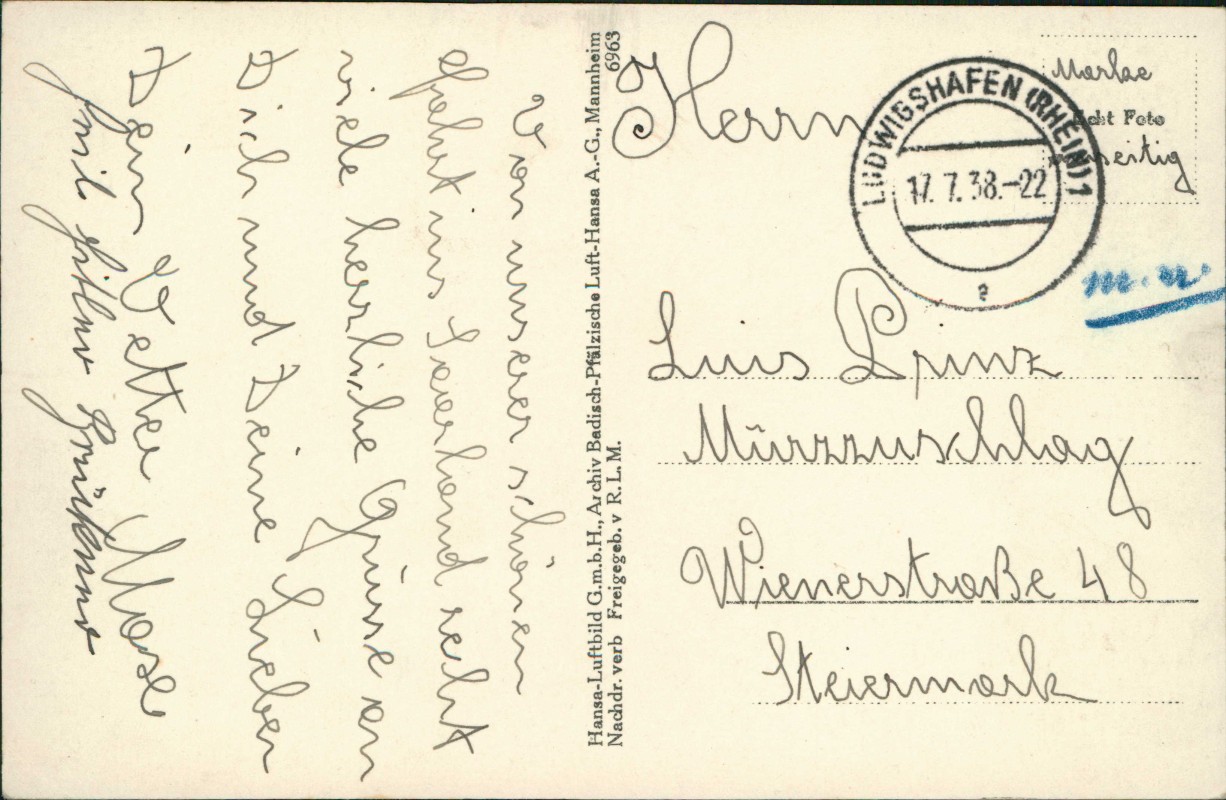 Von unserer schönen
Fahrt ins Saarland recht
viele herrliche Grüsse an
Dich und Deine Lieben
Dein Vetter
Hansa-Luftbild G.m.b.H., Archiv Badisch-Pfälzische Luft-Hansa A.-G., Mannheim
Nachdr. verb Freigegeb. v R.L.M. 6963
Herrn
Luis Prinz
Mürzzuschlag
Wienerstraße 48
Steiermark
LUDWIGSHAFEN (RHEIN) 1
17.7.38.-22
a
Marke
Echt Foto